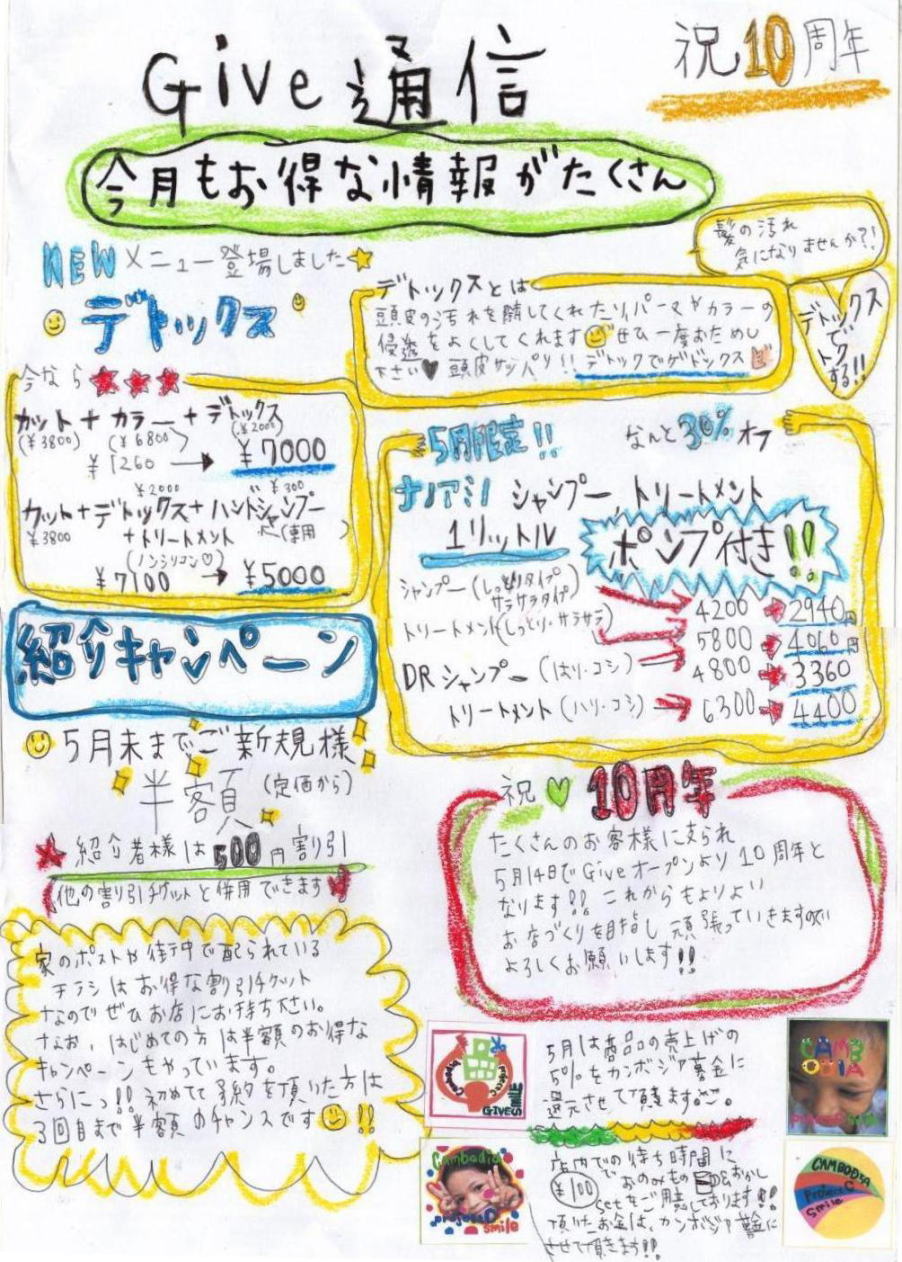 Give通信
祝10周年
今月もお得な情報がたくさん
髪の汚れ
気になりませんか?!
デトックス
で
トク
する!!
NEWメニュー登場しました
デトックス
デトックスとは
頭皮の汚れを隣してくれたり、パーマやカラーの
侵透をよくしてくれます ぜひ一度おためし
下さい♥ 頭皮サッパリ!! デトックでゲドックス
今なら★★★
カット+カラー+デトックス
(¥3800) (¥6800) (¥2000)
¥1260 → ¥7000
¥2000 ¥300
カット+デトックス+ハンドシャンプー
¥3800 +トリートメント (専用)
(ノンシリコン♡)
¥7100 → ¥5000
5月限定!! なんと30%オフ
ナノアミノ シャンプー トリートメント
1リットル ポンプ付き!!
シャンプー(しっとりタイプ
サラサラタイプ) → 4200 → 2940円
トリートメント(しっとり・サラサラ) → 5800 → 4060円
DRシャンプー(はり・コシ) → 4800 → 3360
トリートメント(ハリ・コシ) → 6300 → 4400
紹介キャンペーン
5月末までご新規様
半額(定価から)
★紹介者様は500円割引
他の割り引チケットと併用できます
家のポストや街中で配られている
チラシはお得な割り引チケット
なのでぜひお店にお持ち下さい。
なお、はじめての方は半額のお得な
キャンペーンもやっています。
さらにっ!! 初めて予約を頂いた方は
3回目まで半額のチャンスです!!
祝♡10周年
たくさんのお客様に支られ
5月14日でGiveオープンより10周年と
なります!! これからもよりよい
お店づくりを目指し頑張っていきますので
よろしくお願いします!!
5月は商品の売上げの
5%をカンボジア募金に
還元させて頂きます。
店内での待ち時間に
¥100でおのみもの
おかし
setをご用意しております!!
頂いたお金は、カンボジア募金に
させて頂きます!!
GIVE'S
SMILE
CAMBODIA
Cambodia
project
smile
CAMBODIA
Project C
Smile